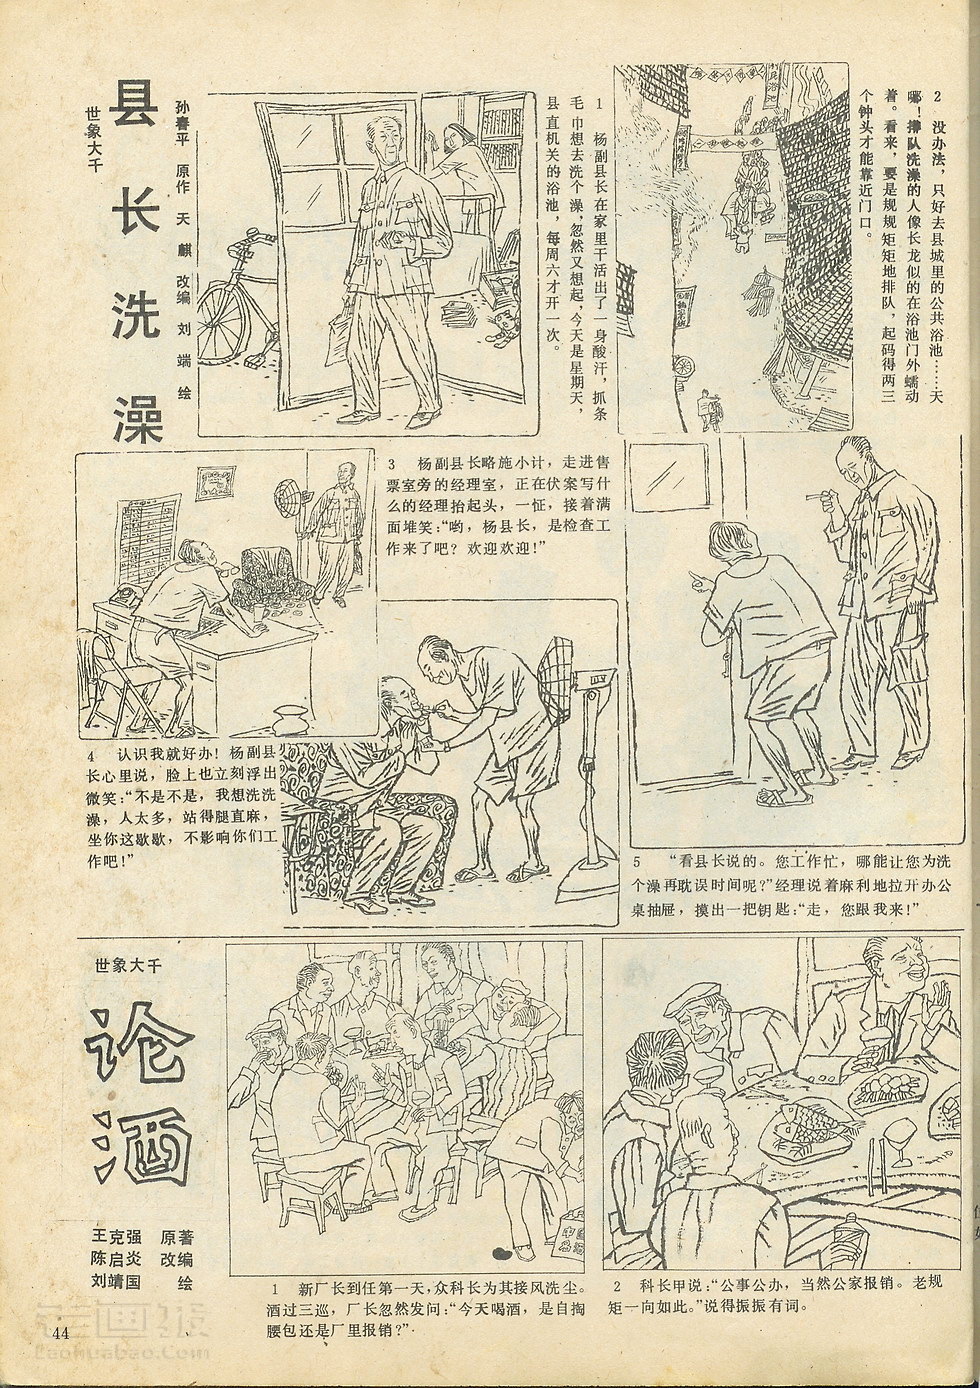 世象大千
县长洗澡
孙春平 原作 天麒 改编 刘端 绘
1 杨副县长在家里干活出了一身酸汗，抓条
毛巾想去洗个澡，忽然又想起，今天是星期天，
县直机关的浴池，每周六才开一次。
2 没办法，只好去县城里的公共浴池……天
哪！排队洗澡的人像长龙似的在浴池门外蠕动
着。看来，要是规规矩矩地排队，起码得两三
个钟头才能靠近门口。
3 杨副县长略施小计，走进售
票室旁的经理室，正在伏案写什
么的经理抬起头，一怔，接着满
面堆笑：“哟，杨县长，是检查工
作来了吧？欢迎欢迎！”
4 认识我就好办！杨副县
长心里说，脸上也立刻浮出
微笑：“不是不是，我想洗洗
澡，人太多，站得腿直麻，
坐你这歇歇，不影响你们工
作吧！”
5 “看县长说的。您工作忙，哪能让您为洗
个澡再耽误时间呢？”经理说着麻利地拉开办公
桌抽屉，摸出一把钥匙：“走，您跟我来！”
世象大千
论酒
王克强 原著
陈启炎 改编
刘靖国 绘
1 新厂长到任第一天，众科长为其接风洗尘。
酒过三巡，厂长忽然发问：“今天喝酒，是自掏
腰包还是厂里报销？”
2 科长甲说：“公事公办，当然公家报销。老规
矩一向如此。”说得振振有词。
44
老画报
Laohuabao.Com